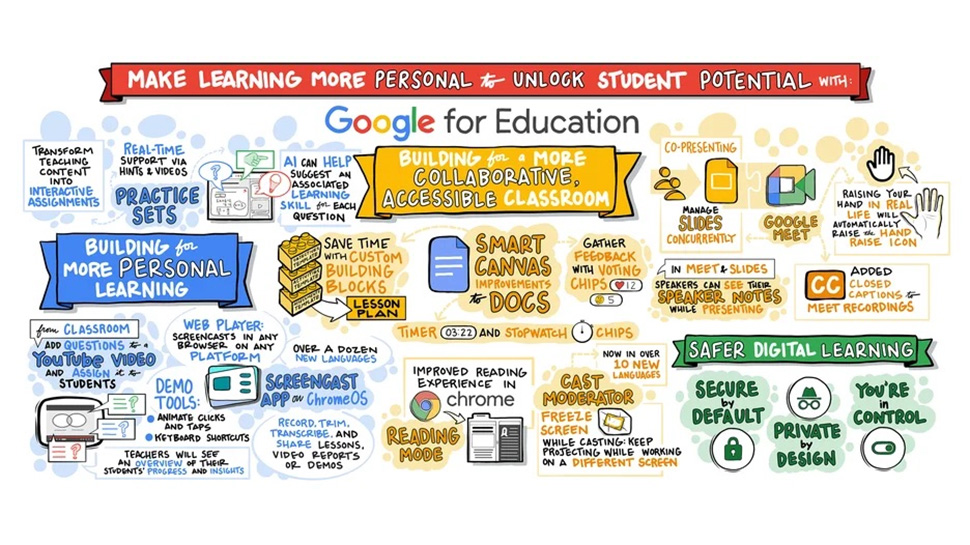 MAKE LEARNING MORE PERSONAL to UNLOCK STUDENT POTENTIAL WITH:
Google for Education
TRANSFORM
TEACHING
CONTENT
INTO
INTERACTIVE
ASSIGNMENTS
REAL-TIME
SUPPORT VIA
HINTS & VIDEOS
PRACTICE
SETS
AI CAN HELP
SUGGEST AN
ASSOCIATED
LEARNING
SKILL for EACH
QUESTION
BUILDING for MORE PERSONAL
LEARNING
from CLASSROOM
ADD QUESTIONS to a
YouTube VIDEO
AND ASSIGN it to
STUDENTS
WEB PLAYER:
SCREENCASTS IN ANY
BROWSER ON ANY
PLATFORM
OVER A DOZEN
NEW LANGUAGES
DEMO
TOOLS:
• ANIMATE CLICKS
AND TAPS
• KEYBOARD SHORTCUTS
SCREENCAST
APP on ChromeOS
RECORD, TRIM,
TRANSCRIBE, AND
SHARE LESSONS,
VIDEO REPORTS
OR DEMOS
TEACHERS WILL SEE
AN OVERVIEW OF THEIR
STUDENTS' PROGRESS AND INSIGHTS
BUILDING for a MORE
COLLABORATIVE,
ACCESSIBLE CLASSROOM
SAVE TIME
WITH CUSTOM
BUILDING
BLOCKS
TEMPLATE
TEMPLATE
TEMPLATE
LESSON
PLAN
SMART
CANVAS
IMPROVEMENTS
to DOCS
GATHER
FEEDBACK
WITH VOTING
CHIPS
12
5
TIMER 03:22 AND STOPWATCH CHIPS
IMPROVED READING
EXPERIENCE IN
chrome
READING
MODE
NOW IN OVER
10 NEW
LANGUAGES
CAST
MODERATOR
FREEZE
SCREEN
WHILE CASTING: KEEP
PROJECTING WHILE WORKING
ON A DIFFERENT SCREEN
CO-PRESENTING
MANAGE
SLIDES
CONCURRENTLY
GOOGLE
MEET
RAISING YOUR
HAND IN REAL
LIFE WILL
AUTOMATICALLY
RAISE the HAND
RAISE ICON
IN MEET & SLIDES
SPEAKERS CAN SEE THEIR
SPEAKER NOTES
WHILE PRESENTING
CC
ADDED
CLOSED
CAPTIONS to
MEET RECORDINGS
SAFER DIGITAL LEARNING
SECURE
by
DEFAULT
PRIVATE
by
DESIGN
YOU'RE
in
CONTROL